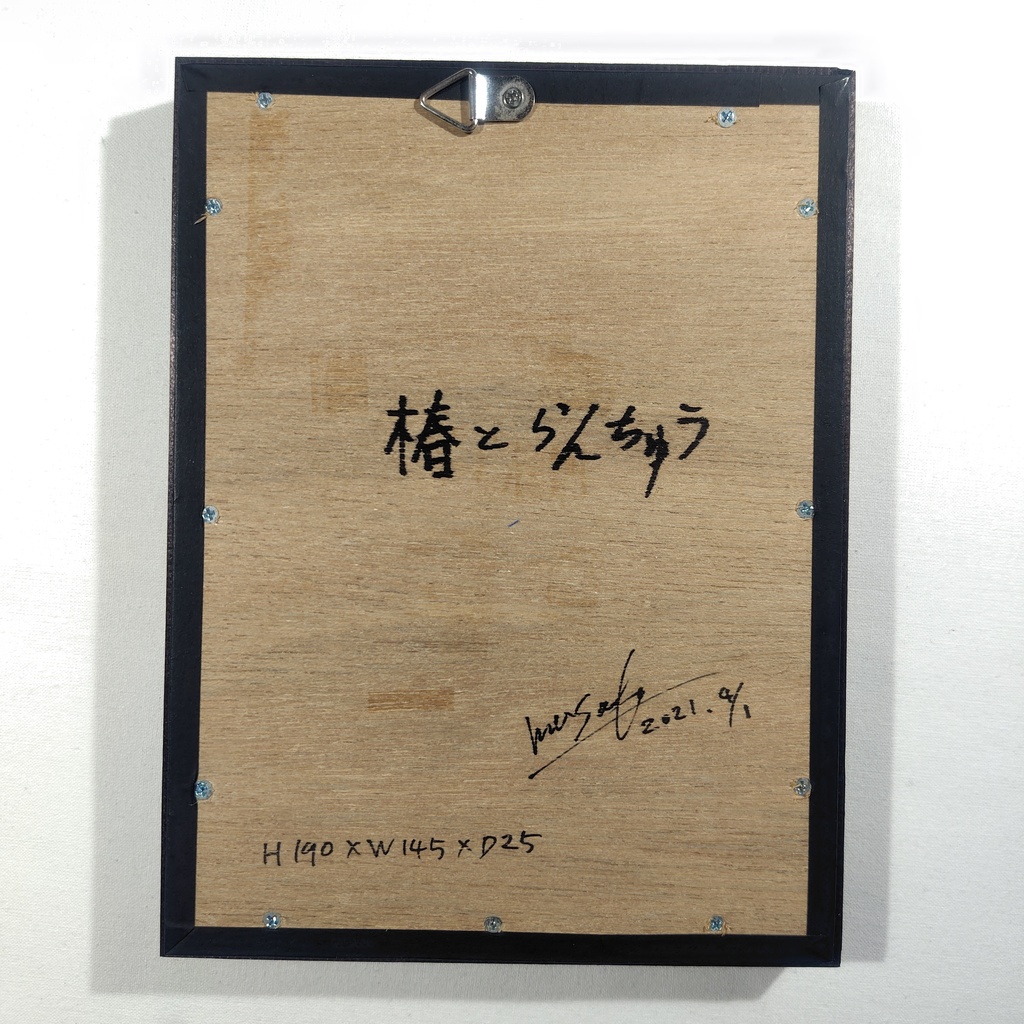 椿とらんちゅう
2021. 9/1
H190×W145×D25